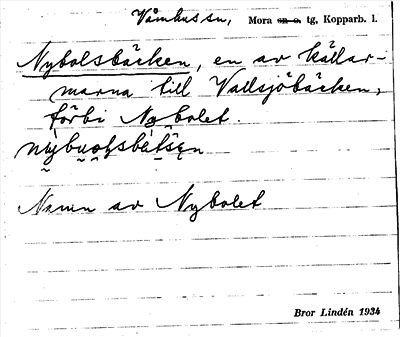 Våmhus sn, Mora sn o. tg, Kopparb. l.
Nybolsbäcken, en av källar-
marna till Vallsjöbäcken,
förbi Nybolet.
Namn av Nybolet
Bror Lindén 1934